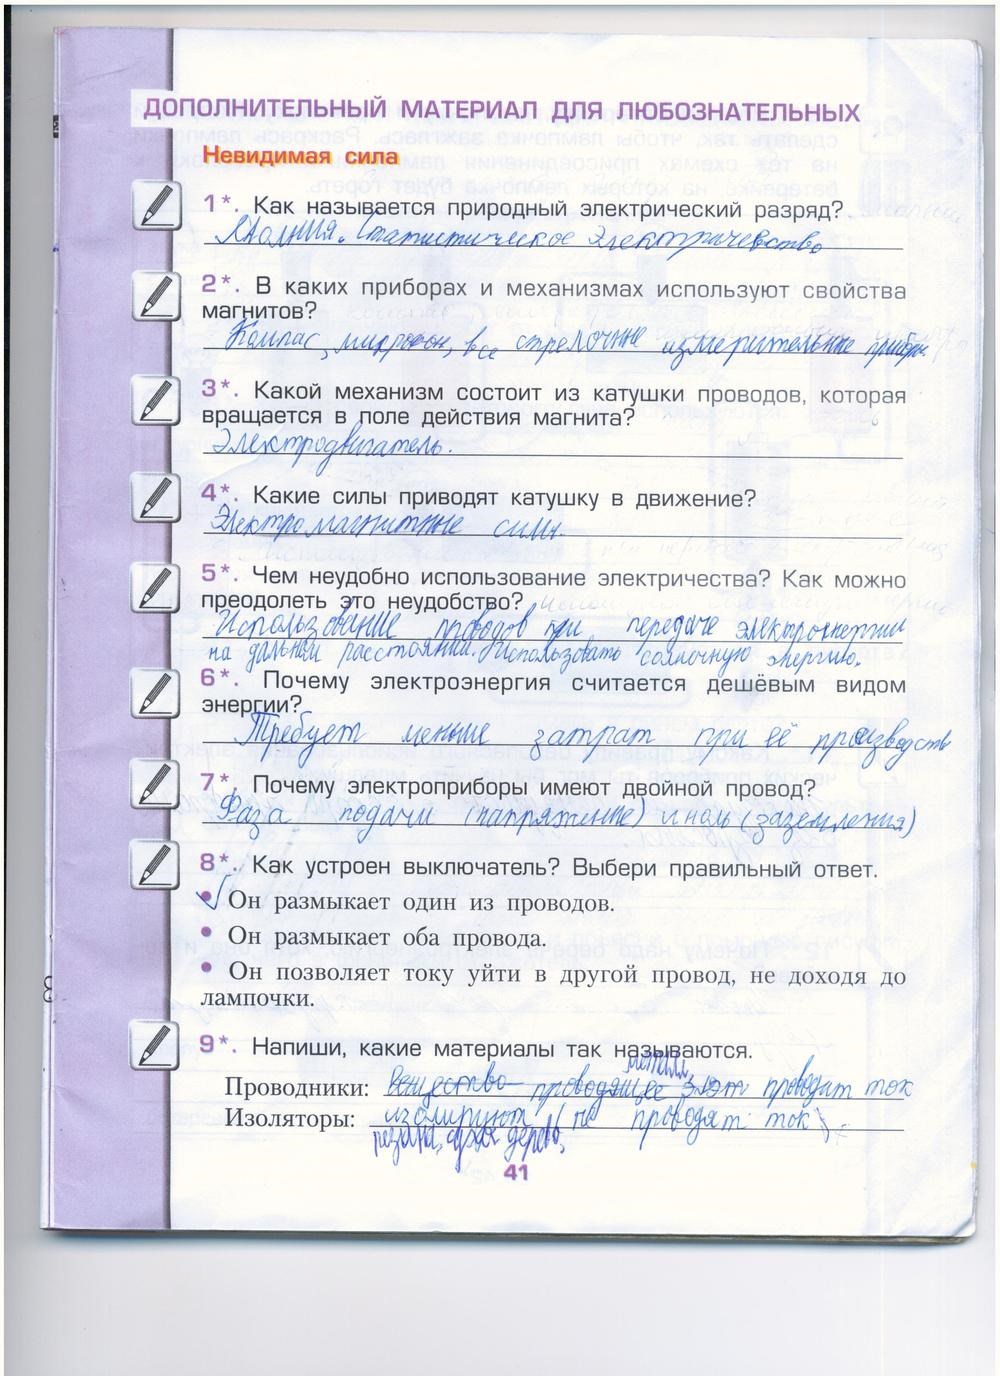 ДОПОЛНИТЕЛЬНЫЙ МАТЕРИАЛ ДЛЯ ЛЮБОЗНАТЕЛЬНЫХ
Невидимая сила
1*. Как называется природный электрический разряд?
Молния. Статистическое электричество.
2*. В каких приборах и механизмах используют свойства
магнитов?
Компас, микрофон, все стрелочные измерительные приборы
3*. Какой механизм состоит из катушки проводов, которая
вращается в поле действия магнита?
Электродвигатель.
4*. Какие силы приводят катушку в движение?
Электромагнитные силы.
5*. Чем неудобно использование электричества? Как можно
преодолеть это неудобство?
Использование проводов при передаче электроэнергии
на дальнем расстоянии. Использовать солнечную энергию.
6*. Почему электроэнергия считается дешёвым видом
энергии?
Требует меньше затрат при её производств
7*. Почему электроприборы имеют двойной провод?
Фаза подачи (напряжение) и ноль (заземления)
8*. Как устроен выключатель? Выбери правильный ответ.
• Он размыкает один из проводов.
• Он размыкает оба провода.
• Он позволяет току уйти в другой провод, не доходя до
лампочки.
9*. Напиши, какие материалы так называются.
металл,
Проводники: Вещество – проводящее проводит ток
Изоляторы: изолируют не проводят ток
резина, сухое дерево,
41